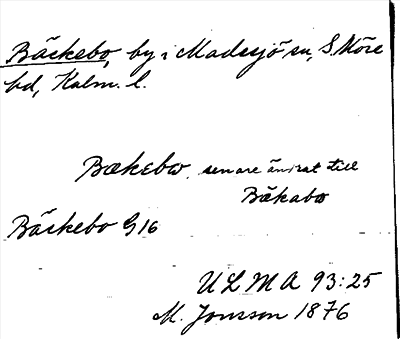 Bäckebo, by i Madesjö sn, S. Möre
hd, Kalm. l.
Bækebω, senare ändrat till
Bäkabω
Bäckebo G16
ULMA 93:25
M. Jonsson 1876